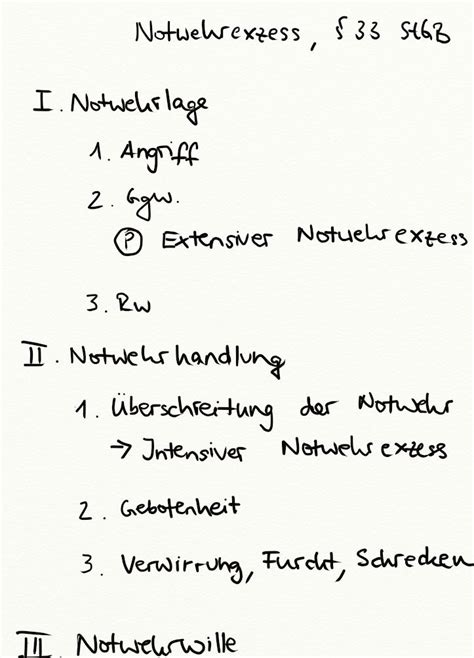 Notwehrexzess, § 33 StGB
I. Notwehrlage
1. Angriff
2. Ggw.
Ⓟ Extensiver Notwehrexzess
3. Rw
II. Notwehrhandlung
1. Überschreitung der Notwehr
→ Intensiver Notwehrexzess
2. Gebotenheit
3. Verwirrung, Furcht, Schrecken
III. Notwehrwille